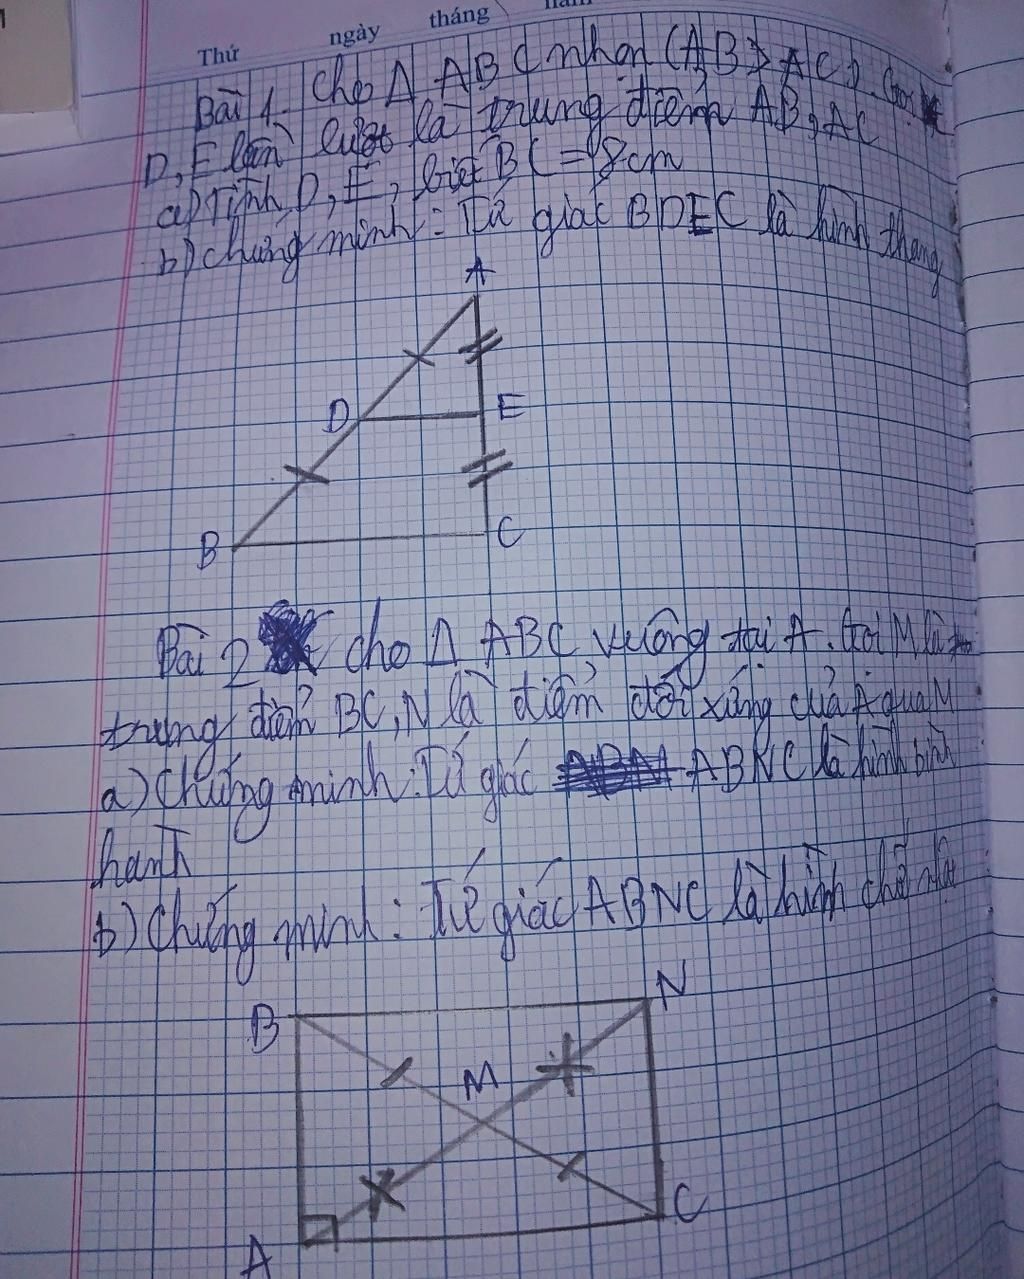 Thứ ngày tháng năm
Bài 1. Cho Δ ABC nhọn (AB > AC). Gọi
D, E lần lượt là trung điểm AB, AC
a) Tính D, E, biết BC = 8cm
b) chứng minh: Tứ giác BDEC là hình thang
A
D E
B C
Bài 2 cho Δ ABC vuông tại A. Gọi M là
trung điểm BC, N là điểm đối xứng của A qua M
a) Chứng minh: Tứ giác ABNC là hình bình
hành
b) Chứng minh: Tứ giác ABNC là hình chữ
B N
M
A C